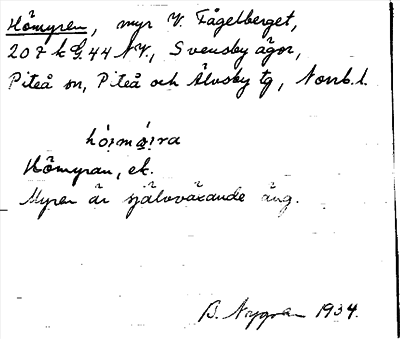 Hömyren, myr V. Fågelberget,
207 k G. 44 NV., Svensby ägor,
Piteå sn, Piteå och Älvsby tg, Norrb. l.
hó̤i̤mó̤i̤ra
Hömyran, ek.
Myren är självväxande äng.
B. Nygren 1934.